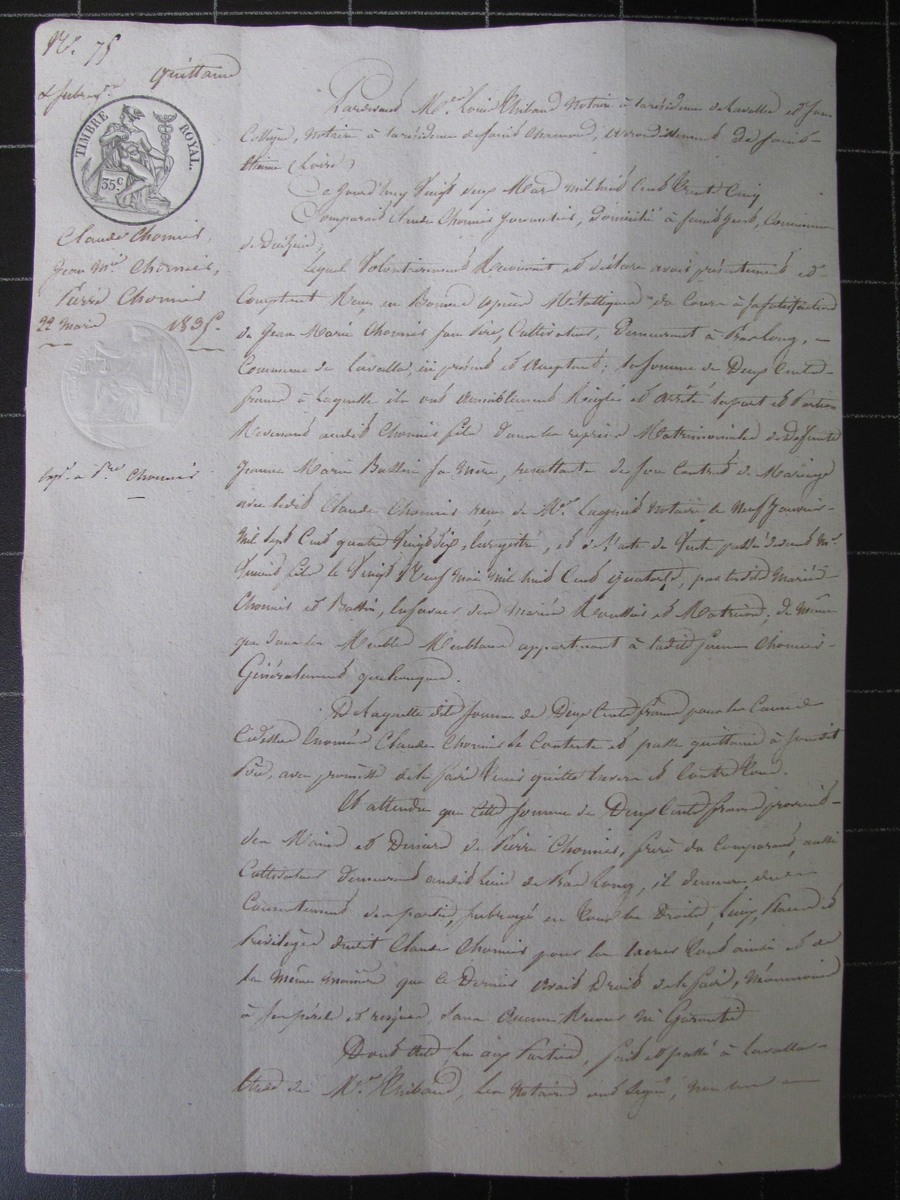 N°. 75
Quittance
& subrog.on
TIMBRE ROYAL.
35c
Claude Chomier,
Jean M.ie Chomier,
Pierre Chomier
22 mars 1835.
exp.on à P.re Chomier
Pardevant M.es Louis Thibaud Notaire à la résidence de Lavalla et son
Collègue, Notaire à la résidence de Saint Chamond, arrondissement de Saint-
Etienne (Loire)
Ce jourd'huy Vingt deux Mars mil huit Cent Trente Cinq
Comparait Claude Chomier, domicilié à Commune
de
Lequel Volontairement Reconnait et déclare avoir présentement et
Comptant Reçu, en Bonnes espèces Métalliques du Cours à sa satisfaction
de Jean Marie Chomier son Père, Cultivateur, Demeurant à
Commune de Lavalla, ici présent et acceptant; la somme de Deux Cents
francs à laquelle ils ont amiablement Réglé et arrêté la part et Portion
Revenant audit Chomier fils dans les reprises Matrimoniales de Défunte
Jeanne Marie Bastin sa Mère, résultante de son Contrat de Mariage
avec ledit Claude Chomier reçu de M.e Notaire le Neuf Janvier
mil sept Cent quatre Vingt dix, enregistré, et de l'acte de Vente passé devant M.e
fils le Vingt Neuf Mai mil huit Cent quatorze, par lesdits Mariés
Chomier et Bastin, en faveur des Mariés et; de même
que dans les Meubles Meublans appartenant à ladite femme Chomier
Généralement quelconques.
De laquelle dite somme de Deux Cents francs pour les Causes
Cidessus énoncées Claude Chomier se Contente et passe quittance à son dit
Père, avec promesse de le faire Tenir quitte envers et Contre Tous.
Et attendu que cette somme de Deux Cents francs provient
des Mains et Deniers de Pierre Chomier, frère du Comparant, aussi
Cultivateur Demeurant audit Lieu de, il demeure, du
Consentement des parties, subrogé en Tous les Droits, Lieu, Place et
Privilèges dudit Claude Chomier pour les exercer Tout ainsi et de
la même manière que Ce Dernier avait Droit de le faire, Néanmoins
à ses périls et risques sans Aucun Recours Ni Garantie
Dont Acte, Lu aux Parties, fait et passé à Lavalla
Etude de M.e Thibaud, les Notaires ont signé, non les